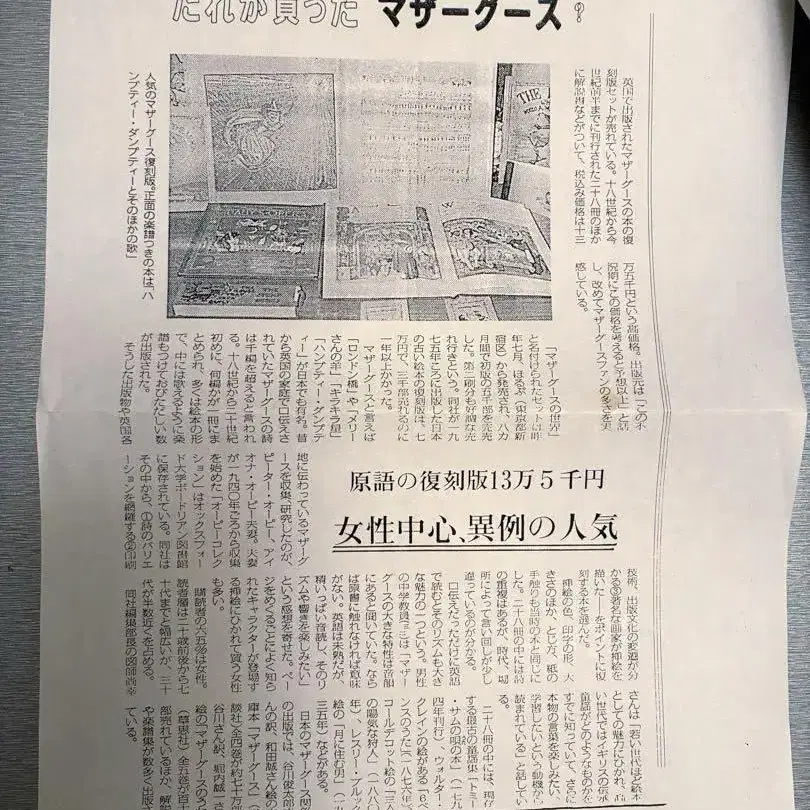 だれが買った マザーグース?
英国で出版されたマザーグースの本の復
刻版セットが売れている。十八世紀から今
世紀前半までに刊行された二十八冊のほか
に解説書などがついて、税込み価格は十三
万五千円という高価格。出版元は「この不
況期にこの価格を考えると予想以上」と話
し、改めてマザーグースファンの多さを実
感している。
人気のマザーグース復刻版。正面の楽譜つきの本は「ハ
ンプティー・ダンプティーとそのほかの歌」
原語の復刻版13万5千円
女性中心、異例の人気
「マザーグースの世界」
と名付けられたセットは昨
年七月、ほるぷ(東京都新
宿区)から発売され、八カ
月間で初版の五千部を完売
した。第二刷分も好調な売
れ行きという。同社が一九
七五年ころに出版した日本
の古い絵本の復刻版は、七
万円で、三千部売れるのに
一年以上かかった。
マザーグースと言えば
「ロンドン橋」や「メリー
さんの羊」「キラキラ星」
「ハンプティー・ダンプテ
ィー」が日本でも有名。昔
から英国の家庭で口伝えさ
れていたマザーグースの詩
は千編を超えると言われ
る。十八世紀から二十世紀
初めに、何編かが一冊にま
とめられ、多くは絵本の形
で、中には歌えるように楽
譜もつけておびただしい数
が出版された。
そうした出版物や英国各
地に伝わっているマザーグ
ースを収集、研究したのが、
ピーター・オーピー、アイ
オナ・オーピー夫妻。夫妻
が一九四〇年ごろから収集
を始めた「オーピーコレク
ション」はオックスフォー
ド大学ボードリアン図書館
に保存されている。同社は
その中から、①詩のバリエ
ーションを網羅する②印刷
技術、出版文化の変遷が分
かる③著名な画家が挿絵を
描いた――をポイントに復
刻する本を選んだ。
挿絵の色、印字の形、大
きさのほか、とじ方、紙の
手触りも当時の本と同じに
した。二十八冊の中には詩
の重複はあるが、時代、場
所によって言い回しが少し
違っているのが分かる。
口伝えだっただけに英語
で読むとそのリズムも大き
な魅力の一つという。男性
の中学教員は「マザー
グースの大きな特性は音韻
にあると聞いていた。なら
ば原書に触れなければ意味
がない。英語は未熟だが、
精いっぱい音読し、そのリ
ズムや響きを楽しみたい」
という感想を寄せた。ペー
ジをめくるごとによく知ら
れたキャラクターが登場す
る挿絵にひかれて買う女性
も多い。
購読者の六五%は女性。
読者層は二十歳前後から七
十代までと幅広いが、三十
代が半数近くを占める。
同社編集部長の図師尚幸
さんは「若い世代ほど絵本
としての魅力にひかれ、高
い世代ではイギリスの伝承
童謡がどのようなものかを
すでに知っていて、さらに
本物の言葉を楽しみたい、
学習したいという動機から
読まれている」と話してい
る。
二十八冊の中には、現存
する最古の童謡集「トミー
・サムの唄の本」(一七
四年刊)、ウォルター・
クレインの絵がある「6ペ
ンスのうた」(一八七六年)、
コールデコット絵の「三人
の陽気な狩人」(一八八
年)、レスリー・ブルック
絵の「月に住む男」(一九
三五年)などがある。
日本のマザーグース関
の出版では、谷川俊太郎
んの訳、和田誠さん絵の
庫本「マザーグース」(講
談社)全四巻が約七十万
谷川さん訳、堀内誠一さん
絵の「マザーグースのうた」
(草思社)全五巻が百十
部売れているほか、解説
や楽譜集が数多く出版
ている。